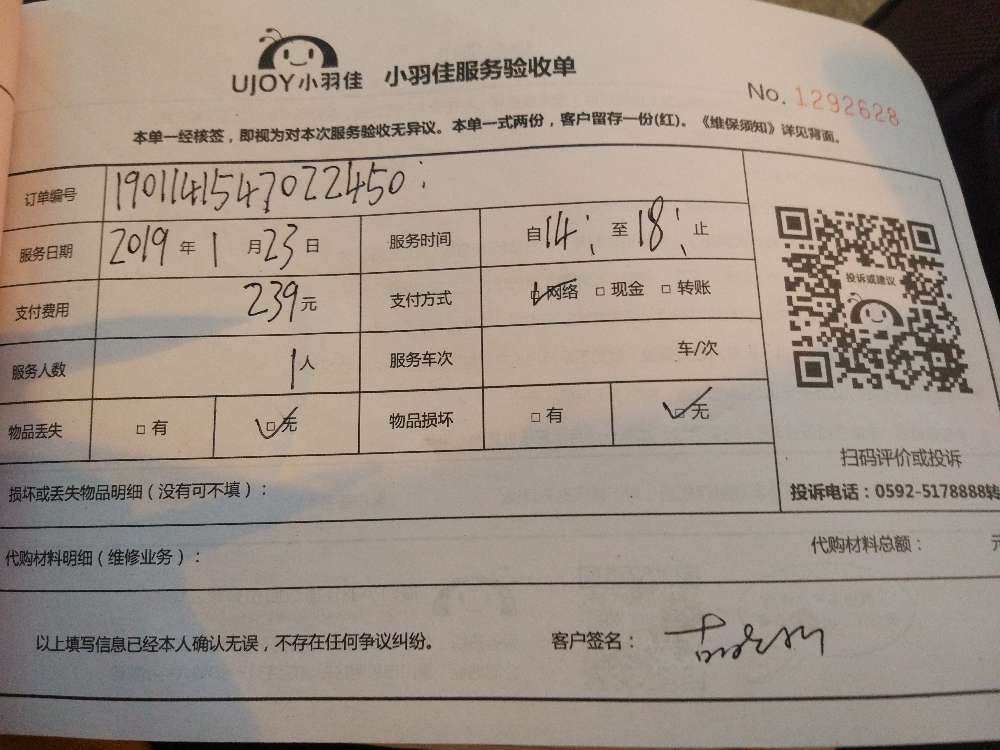 UJOY小羽佳 小羽佳服务验收单
No. 1292628
本单一经核签，即视为对本次服务验收无异议。本单一式两份，客户留存一份(红)。《维保须知》详见背面。
订单编号 1901141547022450
服务日期 2019 年 1 月 23 日 服务时间 自 14: 至 18: 止
支付费用 239 元 支付方式 ☑网络 □现金 □转账
服务人数 1人 服务车次 车/次
物品丢失 □有 ☑无 物品损坏 □有 ☑无
投诉或建议
扫码评价或投诉
投诉电话：0592-5178888转
损坏或丢失物品明细（没有可不填）：
代购材料明细（维修业务）： 代购材料总额： 元
以上填写信息已经本人确认无误，不存在任何争议纠纷。 客户签名：